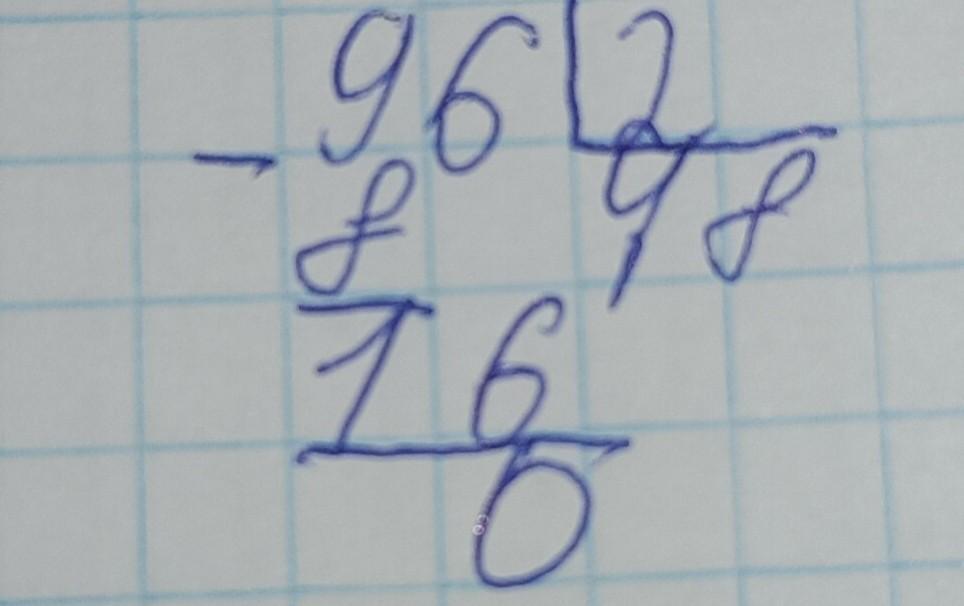 96 2
- 8 48
16
0